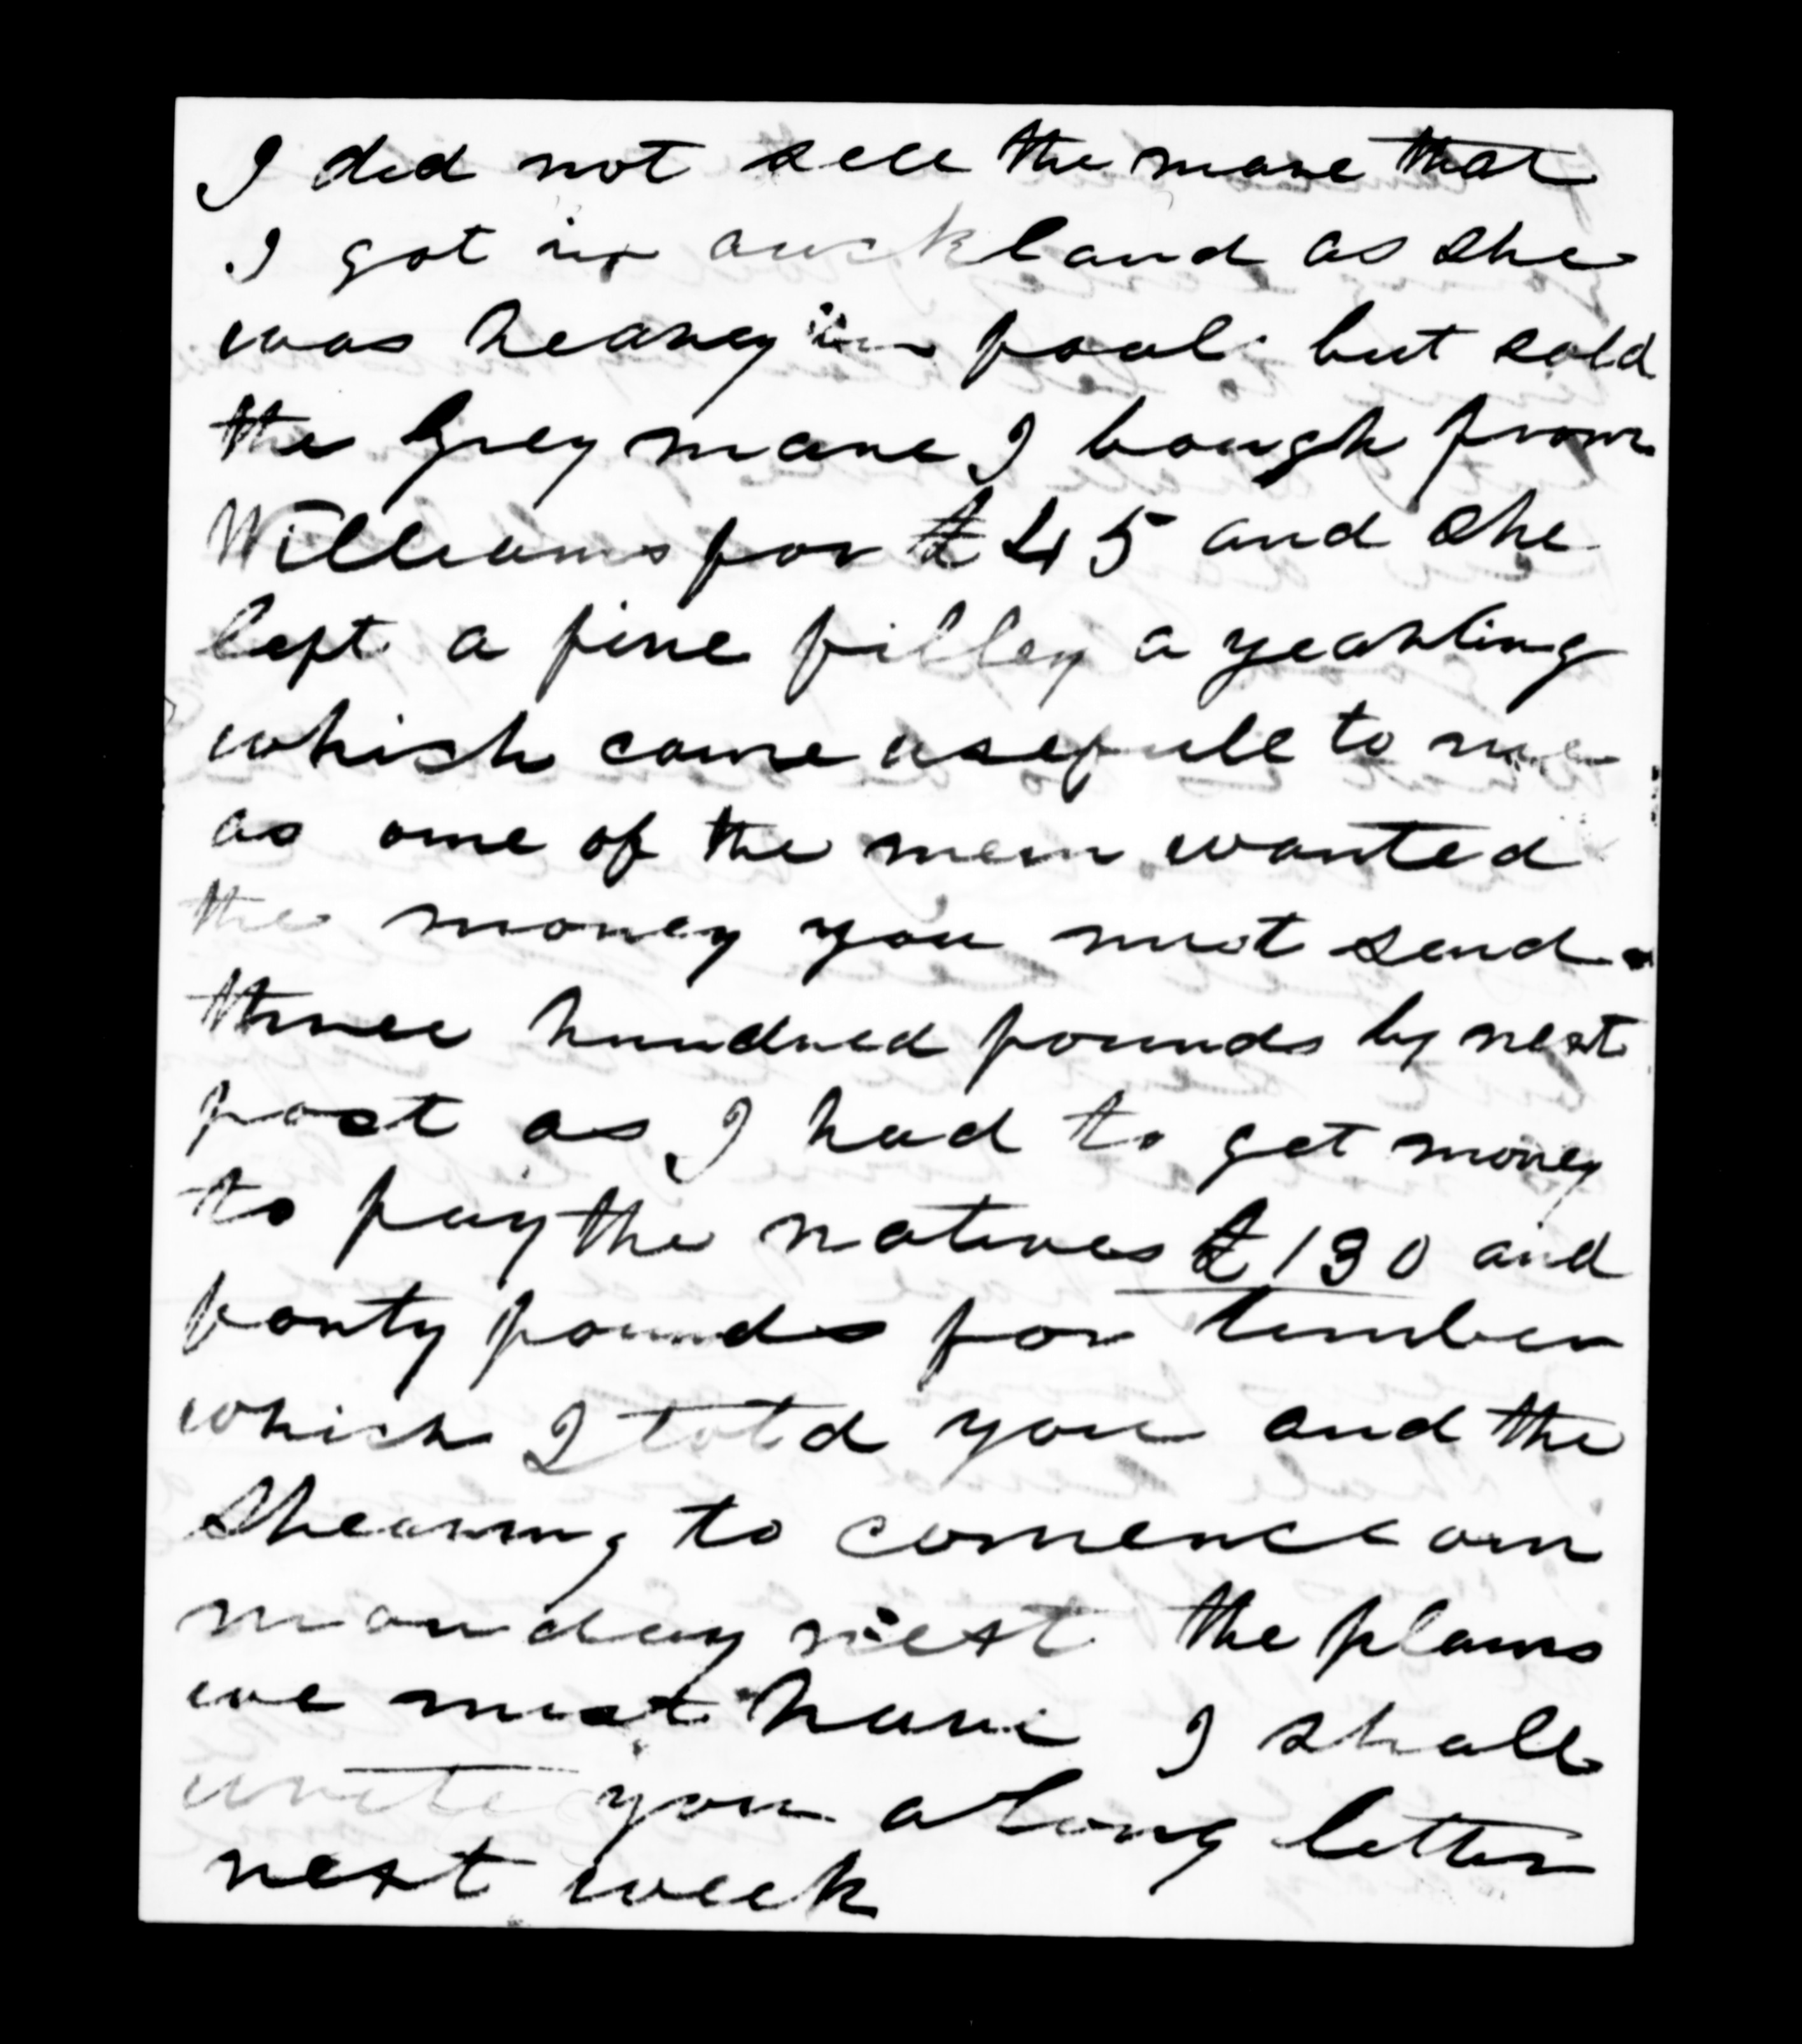 I did not sell the mare that
I got in auckland as she
was heavey in foal but sold
the Grey mare I bough from
Williams for £45 and she
left a fine filley a yearling
which came usefull to me
as one of the men wanted
the money you must send
three hundred pounds by next
post as I had to get money
to pay the natives £130 and
forty pounds for timber
which I told you and the
Shearing to comence on
monday next the plans
we must have I shall
write you a long letter
next week